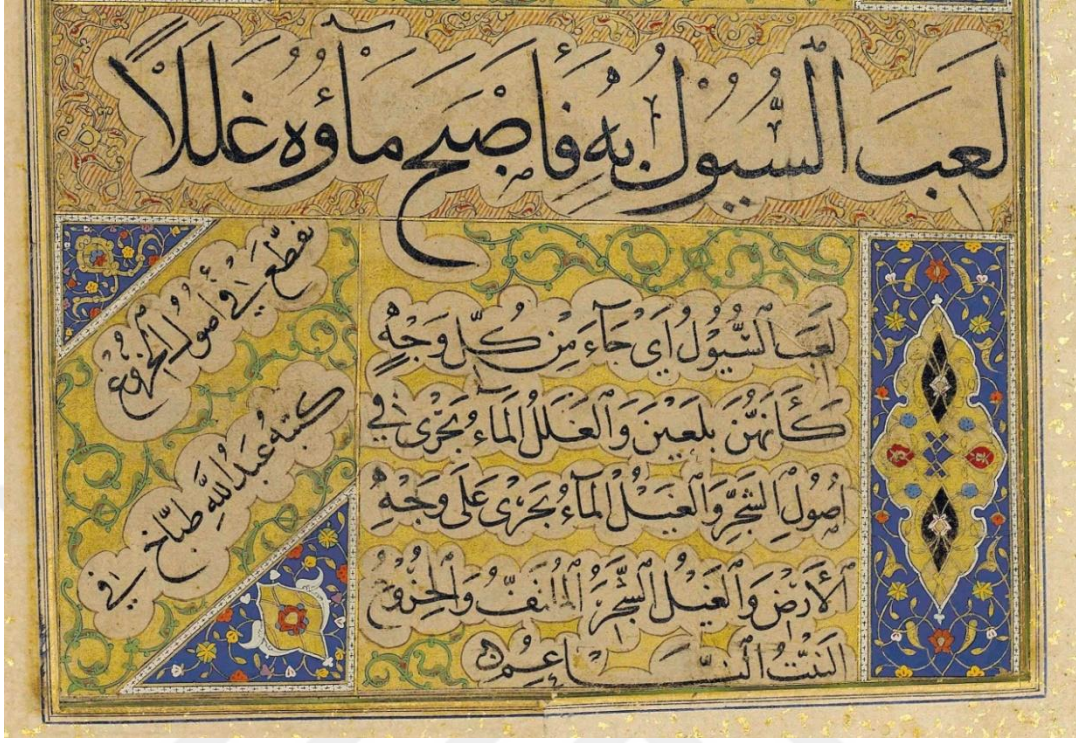 لَعِبَ ٱلسُّيُوْلُ بِهِ فَأَصْبَحَ مَآؤُهُ غَلَلاً
لَعِبَ ٱلسُّيُوْلُ أَيْ جَآءَ مِنْ كُلِّ وَجْهٍ
كَأَنَّهُنَّ يَلْعَبْنَ وَٱلْغَلَلُ ٱلْمَآءُ يَجْرِىْ فِيْ
اصُوْلِ ٱلشَّجَرِ وَٱلْغَيْلُ ٱلْمَآءُ يَجْرِىْ عَلَى وَجْهِ
ٱلْأَرْضِ وَٱلْغَيْلُ ٱلشَّجَرُ ٱلْمُلْتَفُّ وَٱلْخِرْوَعُ
ٱلنَّبْتُ ٱلنَّاعِمُ
تَقَطَّعَ فِيْ أُصُوْلِ ٱلْخِرْوَعِ
كتبهُ عَبْدُ ٱللَّهِ طبَّاخ فِيْ